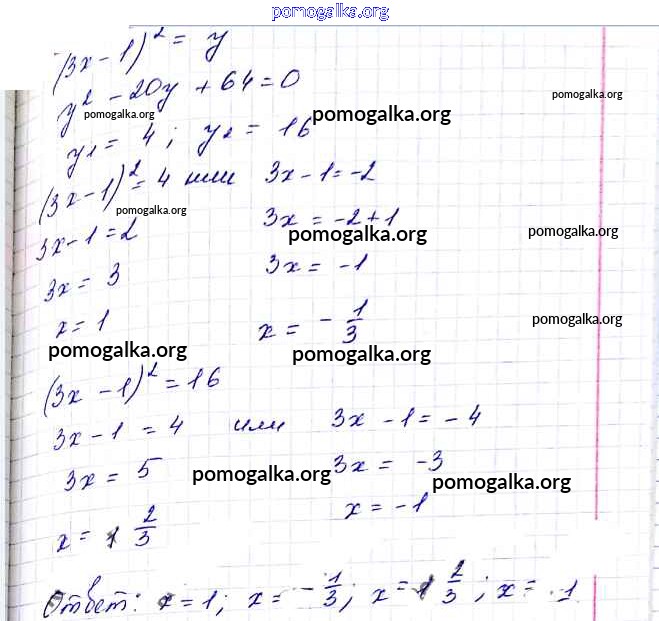 pomogalka.org
(3x-1)² = y
y² - 20y + 64 = 0
pomogalka.org
pomogalka.org
pomogalka.org
y₁ = 4; y₂ = 16
(3x-1)² = 4 или 3x-1=-2
pomogalka.org
3x-1=2 3x = -2+1
pomogalka.org
pomogalka.org
3x = 3 3x = -1
x = 1 x = - 1/3
pomogalka.org
pomogalka.org
pomogalka.org
(3x-1)² = 16
3x-1 = 4 или 3x-1=-4
3x = 5 3x = -3
pomogalka.org
pomogalka.org
x = 1 2/3 x = -1
Ответ: x=1; x= - 1/3; x=1 2/3; x= 1